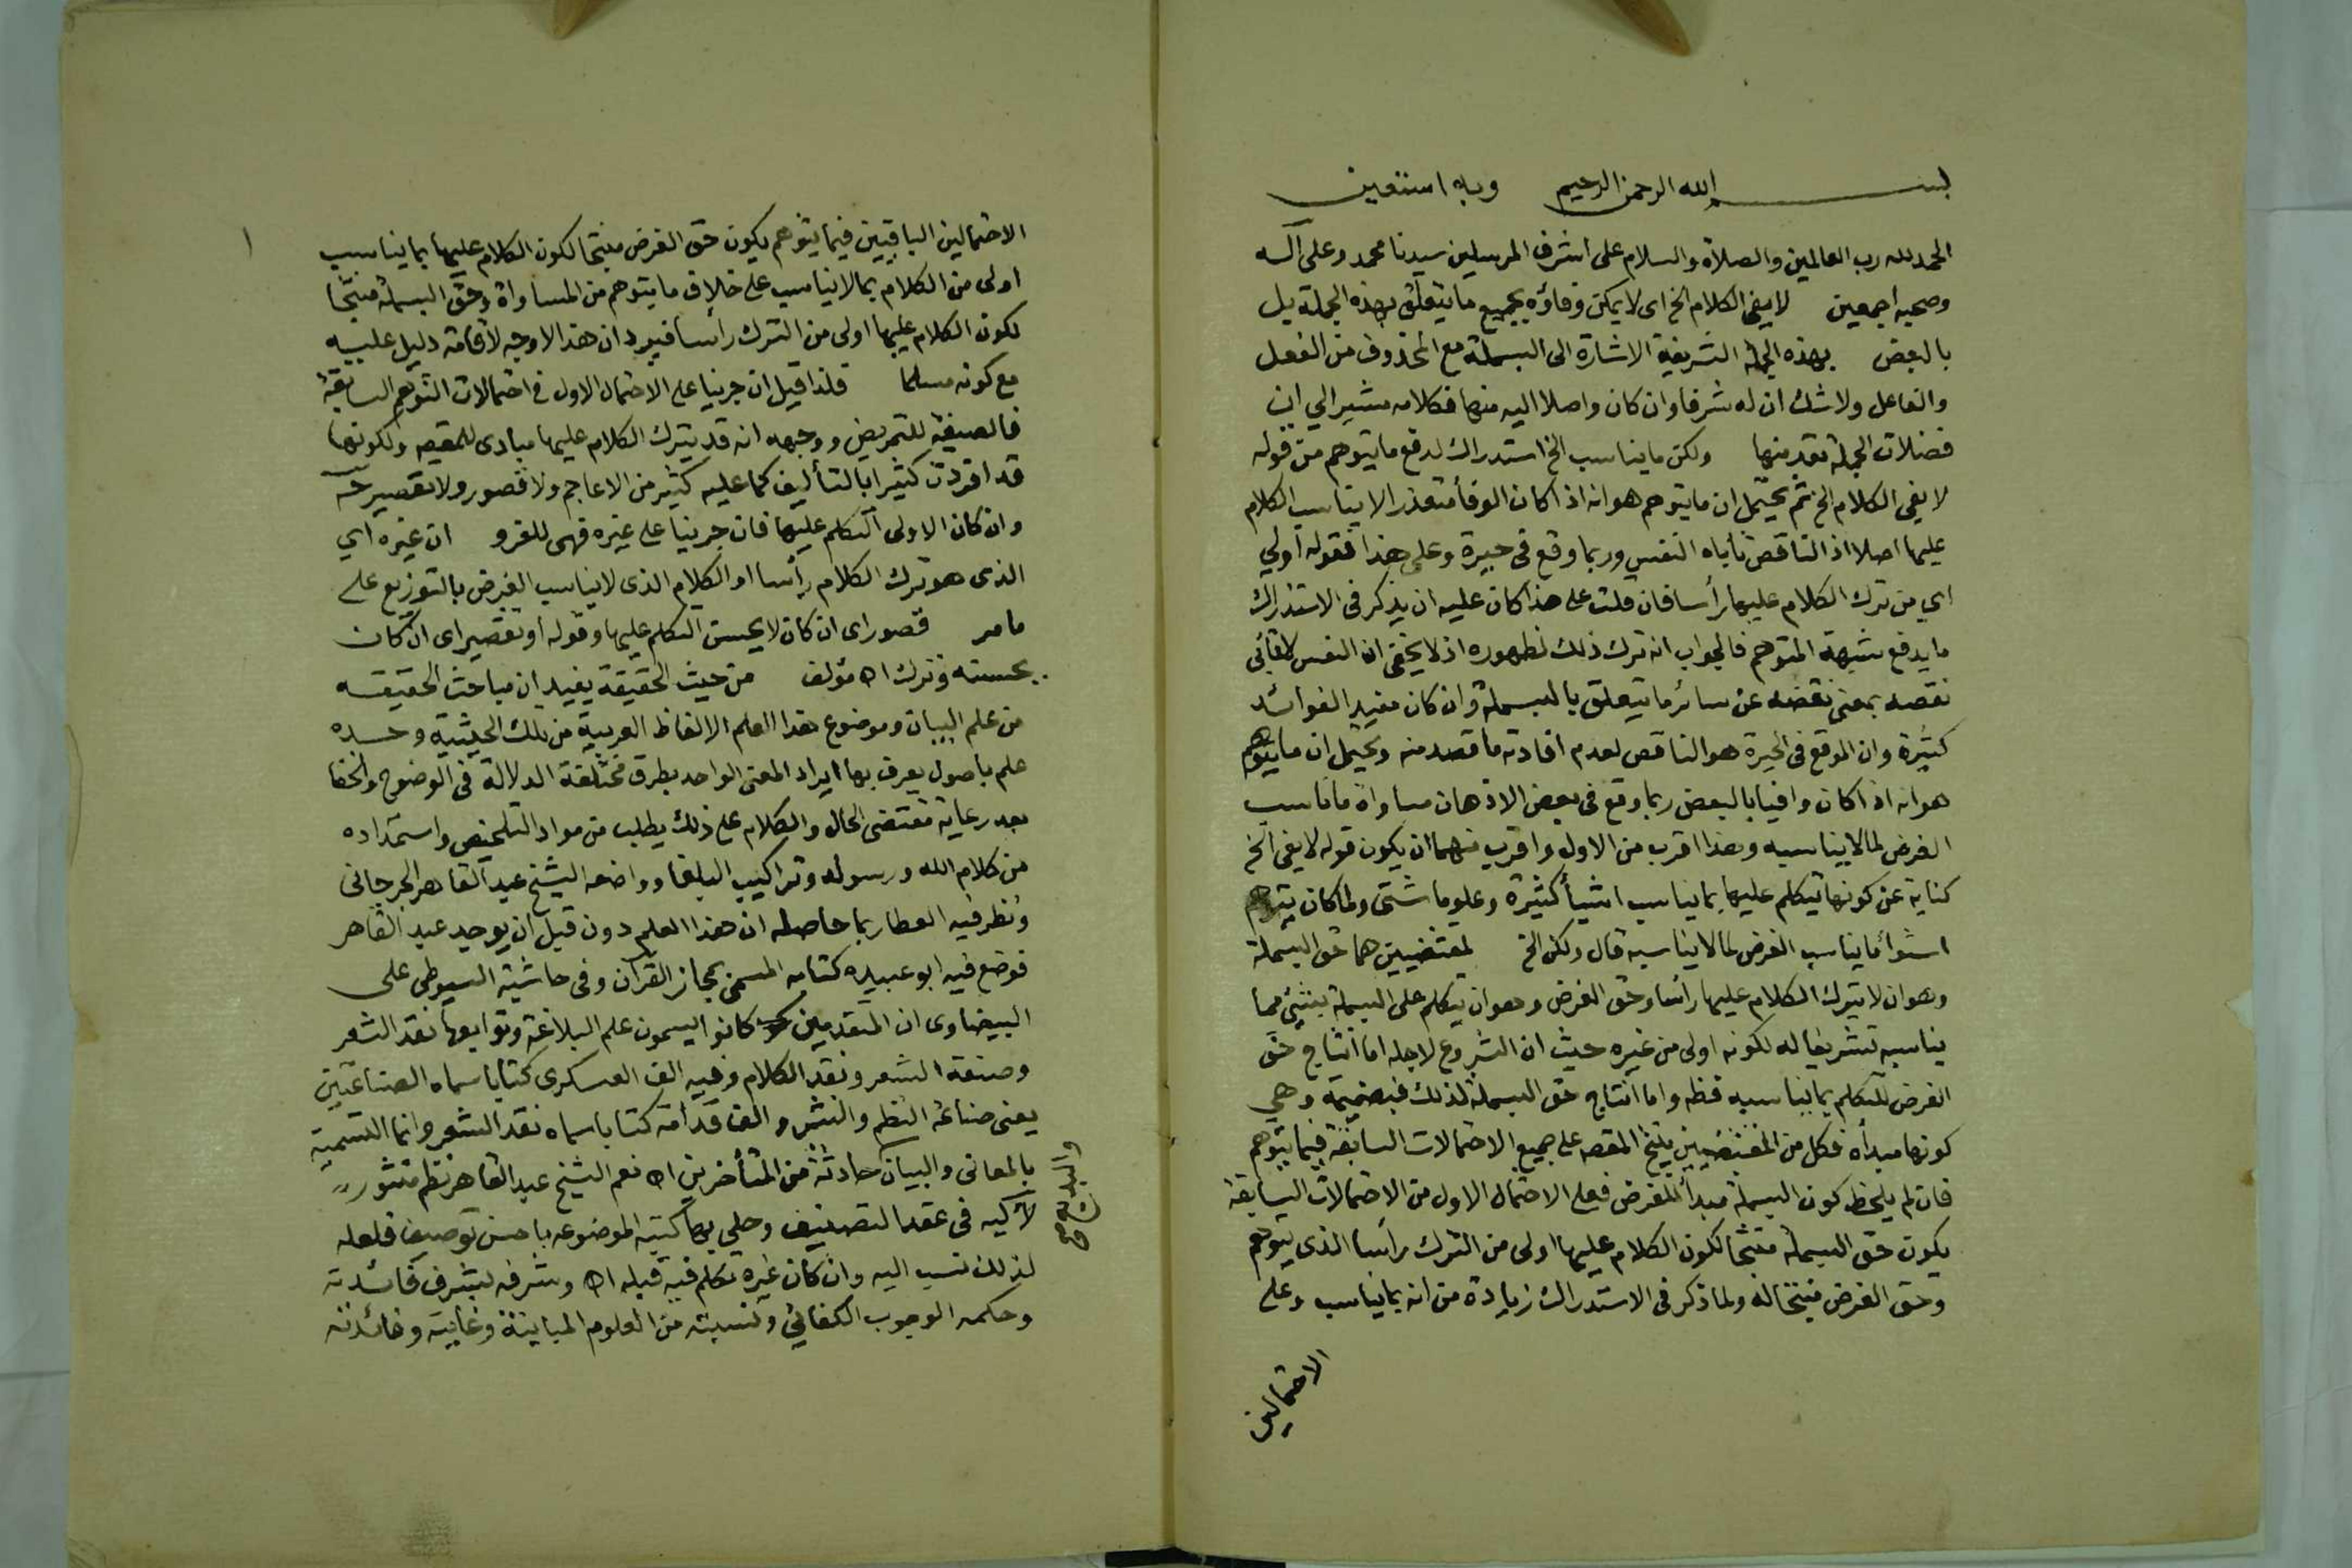 بسم الله الرحمن الرحيم وبه استعين
الحمد لله رب العالمين والصلاة والسلام على اشرف المرسلين سيدنا محمد وعلى آله
وصحبه اجمعين لا يفي الكلام الخ اى لا يمكن وفاؤه بجميع ما يتعلق بهذه الجملة بل
بالبعض بهذه الجملة الشريفة الاشارة الى البسملة مع المحذوف من الفعل
والفاعل ولا شك ان له شرفا وان كان واصلا اليه منها فكلامه مشير الي ان
فضلات الجملة تعد منها ولكن ما يناسب الخ استدراك لدفع ما يتوهم من قوله
لا يفى الكلام الخ ثم يحتمل ان ما يتوهم هو انه اذا كان الوفأ متعذر الا يناسب الكلام
عليها اصلا اذ الناقص تأباه النفس وربما وقع في حيرة وعلى هذا فقوله أولي
اي من ترك الكلام عليها رأسا فان قلت على هذا كان عليه ان يذكر في الاستدراك
ما يدفع شبهة المتوهم فالجواب انه ترك ذلك لظهوره اذ لا يخفى ان النفس لا تأبى
نقصه بمعنى نقصه عن سائر ما يتعلق بالبسملة وان كان مفيد الفوائد
كثيرة وان الموقع في الحيرة هو الناقص لعدم افادته ما قصد منه ويحتمل ان ما يتوهم
هو انه اذا كان وافيا بالبعض ربما وقع في بعض الاذهان مساواة ما ناسب
الغرض لما لا يناسبه وهذا اقرب من الاول واقرب منهما ان يكون قوله لا يفي الخ
كناية عن كونها تيكلم عليها بما يناسب اشيأ كثيرة وعلوما شتى ولما كان يتوهم
استوأ ما يناسب الغرض لما لا يناسبه قال ولكن الخ لمقتضيين هما حق البسملة
وهو ان لا يترك الكلام عليها رأسا وحق الغرض وهو ان يتكلم على البسملة بشئ مما
يناسبه تشريفا له لكونه اولى من غيره حيث ان الشروع لاجله اما انتاج حق
الغرض للتكلم بما يناسبه فظه واما انتاج حق البسملة لذلك فبضميمة وهي
كونها مبدأه فكل من المقتضيين ينتج المقصه على جميع الاحتمالات السابقة فيما يتوهم
فان لم يلحظ كون البسملة مبدأ للغرض فعلى الاحتمال الاول من الاحتمالات السابقة
يكون حق البسملة منتجا لكون الكلام عليها اولى من الترك رأسا الذى يتوهم
وحق الغرض منتجا له ولما ذكر في الاستدراك زيادة من انه بما يناسب وعلى
الاحتمالين
الاحتمالين الباقيين فيما يتوهم يكون حق الغرض منتجا لكون الكلام عليها بما يناسب
اولى من الكلام بما لا يناسب على خلاف ما يتوهم من المساواة وحق البسملة منتجا
لكون الكلام عليها اولى من الترك رأسا فيرد ان هذا لا وجه لاقامة دليل عليه
مع كونه مسلما فلذا قيل ان جرينا على الاحتمال الاول في احتمالات التوهم السابقة
فالصيغة للتمريض ووجهه انه قد يترك الكلام عليها مبادى للمقصه ولكونها
قد افردت كثيرا بالتأليف كما عليه كثير من الاعاجم ولا قصور ولا تقصير ح
وان كان الاولى التكلم عليها فان جرينا على غيره فهى للغرو ان غيره اي
الذى هو ترك الكلام رأسا او الكلام الذى لا يناسب الغرض بالتوزيع على
ما مر قصور اى ان كان لا يحسن التكلم عليها وقوله أو تقصير اى ان كان
يحسنه وترك اه مؤلف من حيث الحقيقة يفيد ان مباحث الحقيقه
من علم البيان وموضوع هذا العلم الالفاظ العربية من تلك الحيثية وحده
علم باصول يعرف بها ايراد المعنى الواحد بطرق مختلفة الدلالة في الوضوح والخفا
بعد رعاية مقتضى الحال والكلام على ذلك يطلب من مواد التلخيص واستمداده
من كلام الله ورسوله وتراكيب البلغا وواضعه الشيخ عبد القاهر الجرجانى
ونظر فيه العطار بما حاصله ان هذا العلم دون قبل ان يوجد عبد القاهر
فوضع فيه ابو عبيده كتابه المسمى بمجاز القرآن وفي حاشية السيوطي على
البيضاوى ان المتقدمين كانوا يسمون علم البلاغة وتوابعها نقد الشعر
وصنعة الشعر ونقد الكلام وفيه الف العسكرى كتابا سماه الصناعتين
يعنى صناعة النظم والنثر والف قدامة كتابا سماه نقد الشعر وانما التسمية
بالمعانى والبيان حادثة من المتأخرين اه نعم الشيخ عبد القاهر نظم منثور
لآليه في عقد التصنيف وحلي بها كتبه الموضوعه باحسن توصيف فلعله
لذلك نسب اليه وان كان غيره تكلم فيه قبله اه وشرفه بشرف فائدته
وحكمه الوجوب الكفائي ونسبته من العلوم المباينة وغايته وفائدته